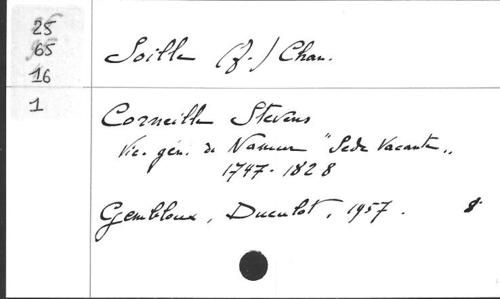 25
65
16
1
Soille (J.) Chan.
Corneille Stevens
Vic. gén. de Namur "Sede Vacante„
1747-1828
Gembloux, Duculot, 1957. 8°